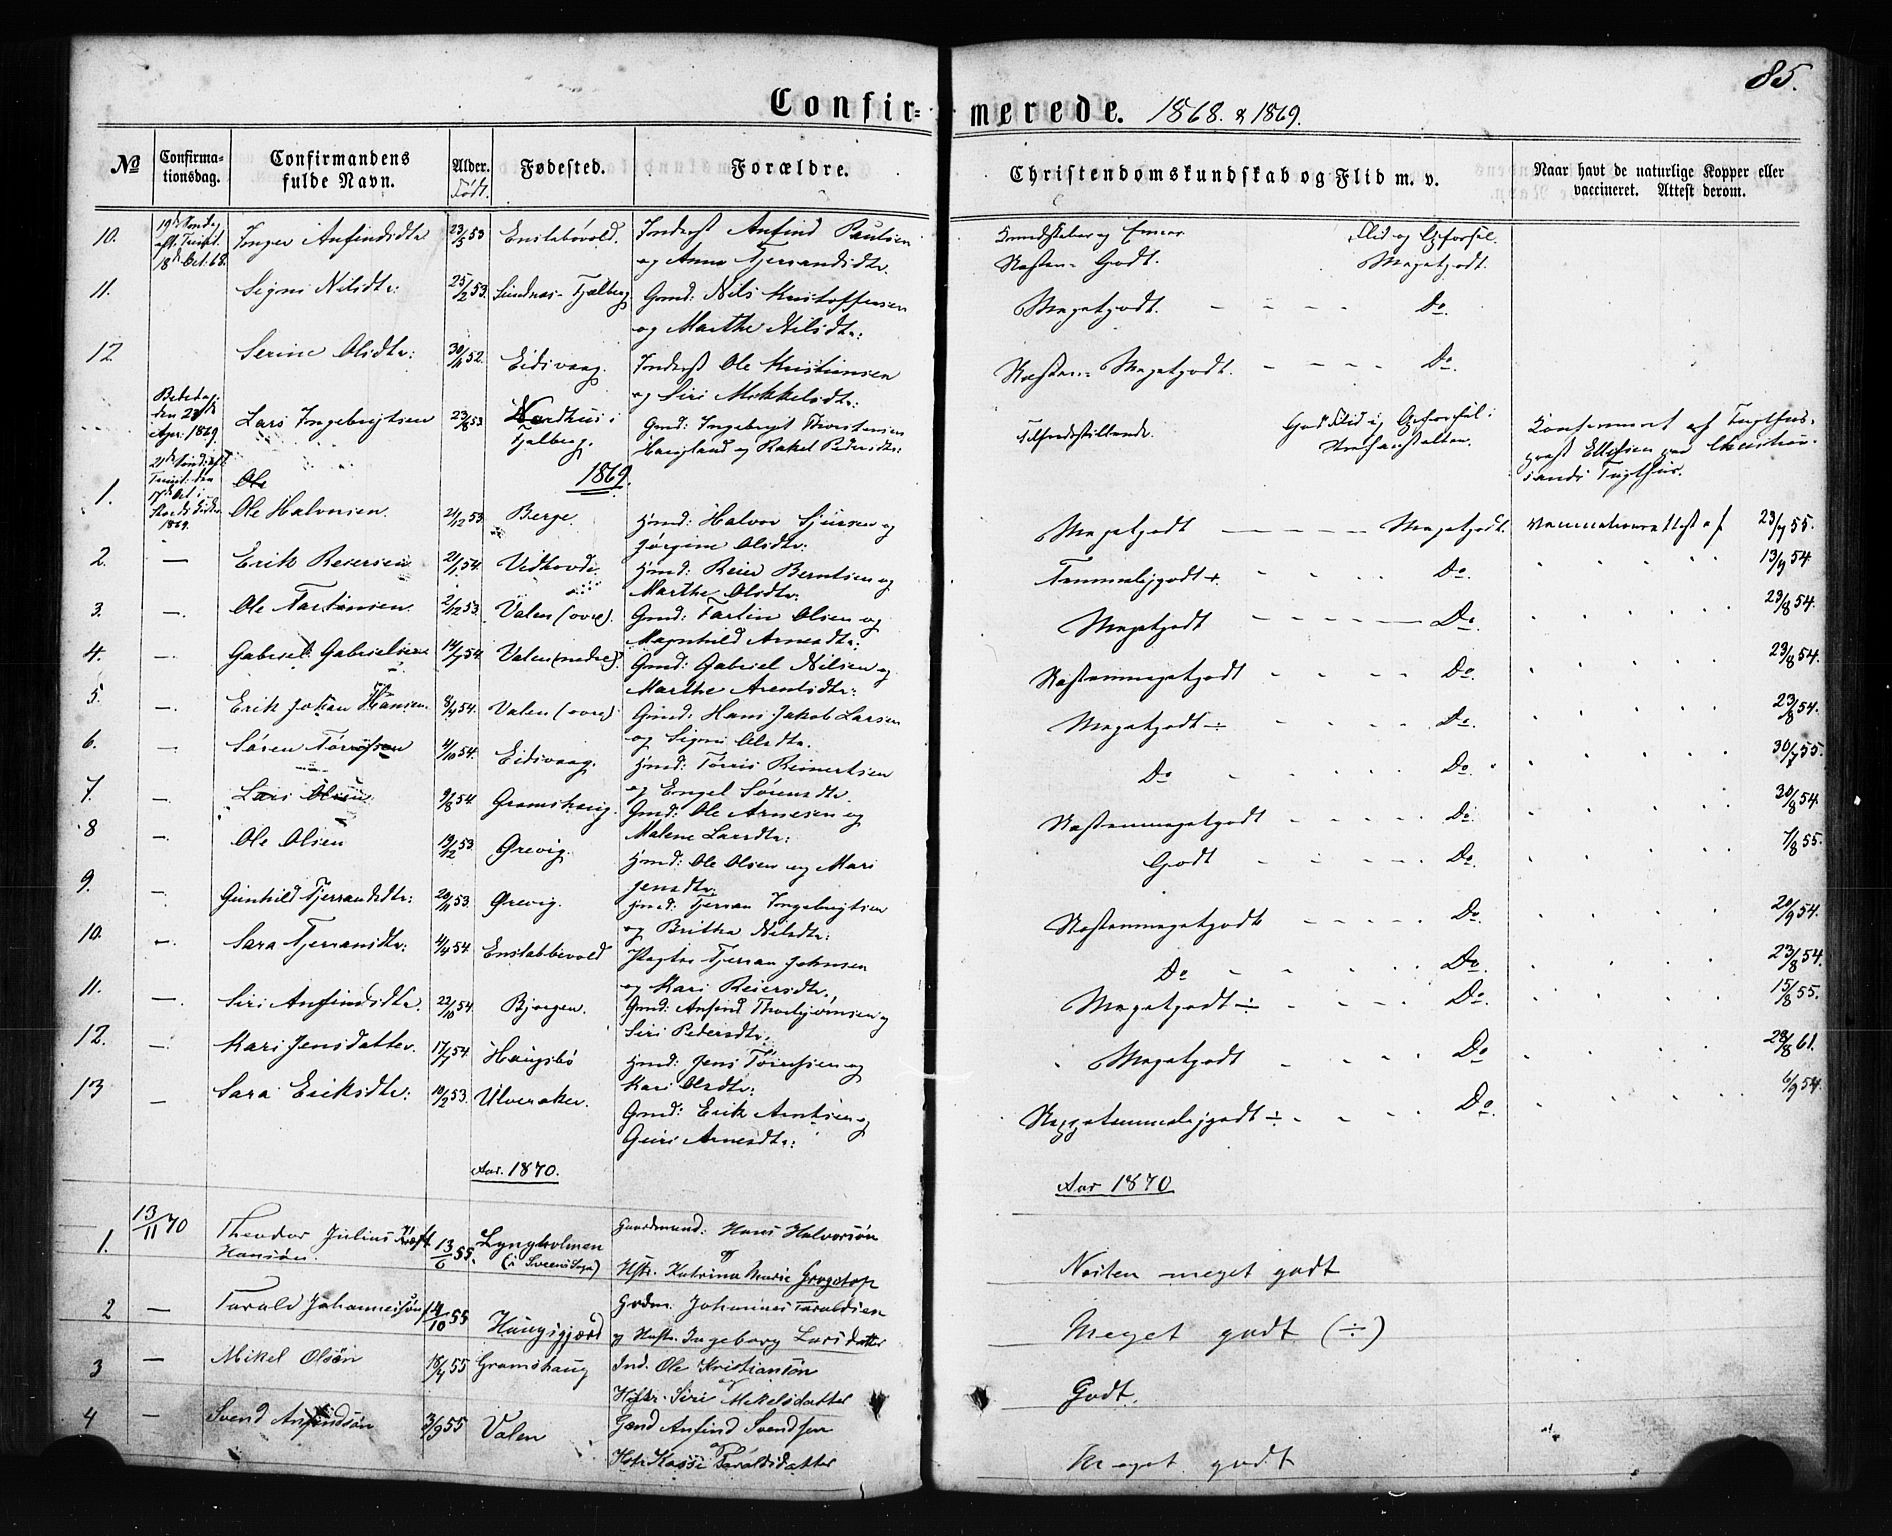 85.
Confir=
merede. 1868. & 1869.
No
Confirma-
tionsdag.
Confirmandens
fulde Navn.
Alder.
Født.
Fødested.
Forældre.
Christendomskundskab og Flid m. v.
Naar havt de naturlige Kopper eller
vaccineret. Attest derom.
10. 18de Oct. 68. Inger Anfindsdtr 23/5 53 Enstabøvold. Inderst Anfind Paulsen
og Anna Tjerrandsdtr.
Kundskaber og Evner Flid og Opførsel.
Næsten Godt. Megetgodt.
11. Signi Nilsdtr: 25/2 53. Sundnæs-Fjælberg Gmd: Nils Kristoffersen
og Marthe Nilsdtr:
Megetgodt. Do.
12. Serine Olsdtr: 30/11 52. Eidsvaag. Inderst Ole Kristiansen
og Siri Mikkelsdtr:
Næsten Megetgodt. Do.
Bededag
den 23de
Apr. 1869. Lars Ingebrigtsen 23/8 53 Nordhus i
Fjelberg. Gmd: Ingebrigt Thorstensen
Haugland og Rakel Pedersdtr:
Tilfredsstillende. God Flid og Opførsel i
Strafanstalten.
Konfirmeret af Tugthus-
præst Ellefsen paa Christian-
sands Tugthus.
1869.
1. 17de Oct. i
1869. Ole
Ole Halvorsen. 21/12 53. Berge. Hmd: Halvor Sjursen og
Jørgine Olsdtr:
Megetgodt Megetgodt. Vaccinationsattest af 23/7 55.
2. — Erik Reiersen 21/1 54. Vidhovde Hmd: Reier Berntsen og
Marthe Olsdtr:
Temmeliggodt + Do. 13/9 54
3. — Ole Tartinsen. 2/12 53. Valen (øvre). Gmd: Tartin Olsen og
Magnhild Arnesdtr:
Megetgodt Do. 23/8 54.
4. — Gabriel Gabrielsen 14/7 54. Valen (nedre). Gmd: Gabriel Nilsen og
Marthe Arentsdtr:
Næstenmegetgodt Do. 23/8 54.
5. — Erik Johan Hansen. 8/4 54. Valen (øvre) Gmd: Hans Jakob Larsen
og Signi Olsdtr.
Megetgodt ÷ Do. 23/8 54.
6. — Søren Tørrissen 4/10 54. Eidsvaag. Hmd: Tørris Reinertsen
og Engel Sørensdtr.
Do Do. 30/7 55.
7. — Lars Olsen 9/8 54. Gramshaug. Gmd: Ole Arnesen og
Malene Larsdtr:
Næstenmegetgodt Do. 30/8 54.
8 — Ole Olsen 19/12 53. Ørevig. Hmd: Ole Olsen og Mari
Jensdtr.
Godt Do. 7/8 55.
9. — Gunhild Tjerrandsdtr: 20/11 53. Ørevig. Hmd: Tjerran Ingebrigtsen
og Britha Nilsdtr:
Næstenmegetgodt Do. 20/9 54.
10. — Sara Tjerransdtr: 4/4 54. Enstabbevold Tjerran Johnsen
og Kari Reiersdtr.
Do Do. 23/8 54.
11. — Siri Anfindsdtr. 22/10 54. Bjørgen. Gmd: Anfind Thorbjørnsen og
Siri Pedersdtr:
Megetgodt ÷ Do. 15/8 55.
12. — Kari Jensdatter. 17/7 54. Haugsbø Hmd: Jens Tørresen og
Kari Olsdtr:
Megetgodt Do 28/8 61.
13 — Sara Eriksdtr: 10/2 53. Ulveraker. Gmd: Erik Arntsen og
Guri Arnesdtr:
Do. 6/9 54.
Aar. 1870.
Aar 1870
1. 13/11 70 Theodor Julius
Hansøn. 13/6 55. Lyngholmen
(i Sveens Sogn) Gaardmand: Hans Halvorsøn
og
Hstr. Katrina Marie
Næsten meget godt
2 — Tarald Johannessøn 4/10 55 Haugsgjærd Grdm. Johannes Taraldsen
og Hustr. Ingeborg Larsdatter
Meget godt (÷)
3 — Mikel Olsøn 18/4 55 Gramshaug Ind. Ole Kristiansøn
og
Hustr. Siri Mikelsdatter
Godt.
4 — Svend Anfindsøn 3/9 55 Valen Gmd Anfind Svendsen
og
Hstr Kassi Taraldsdatter
Meget godt